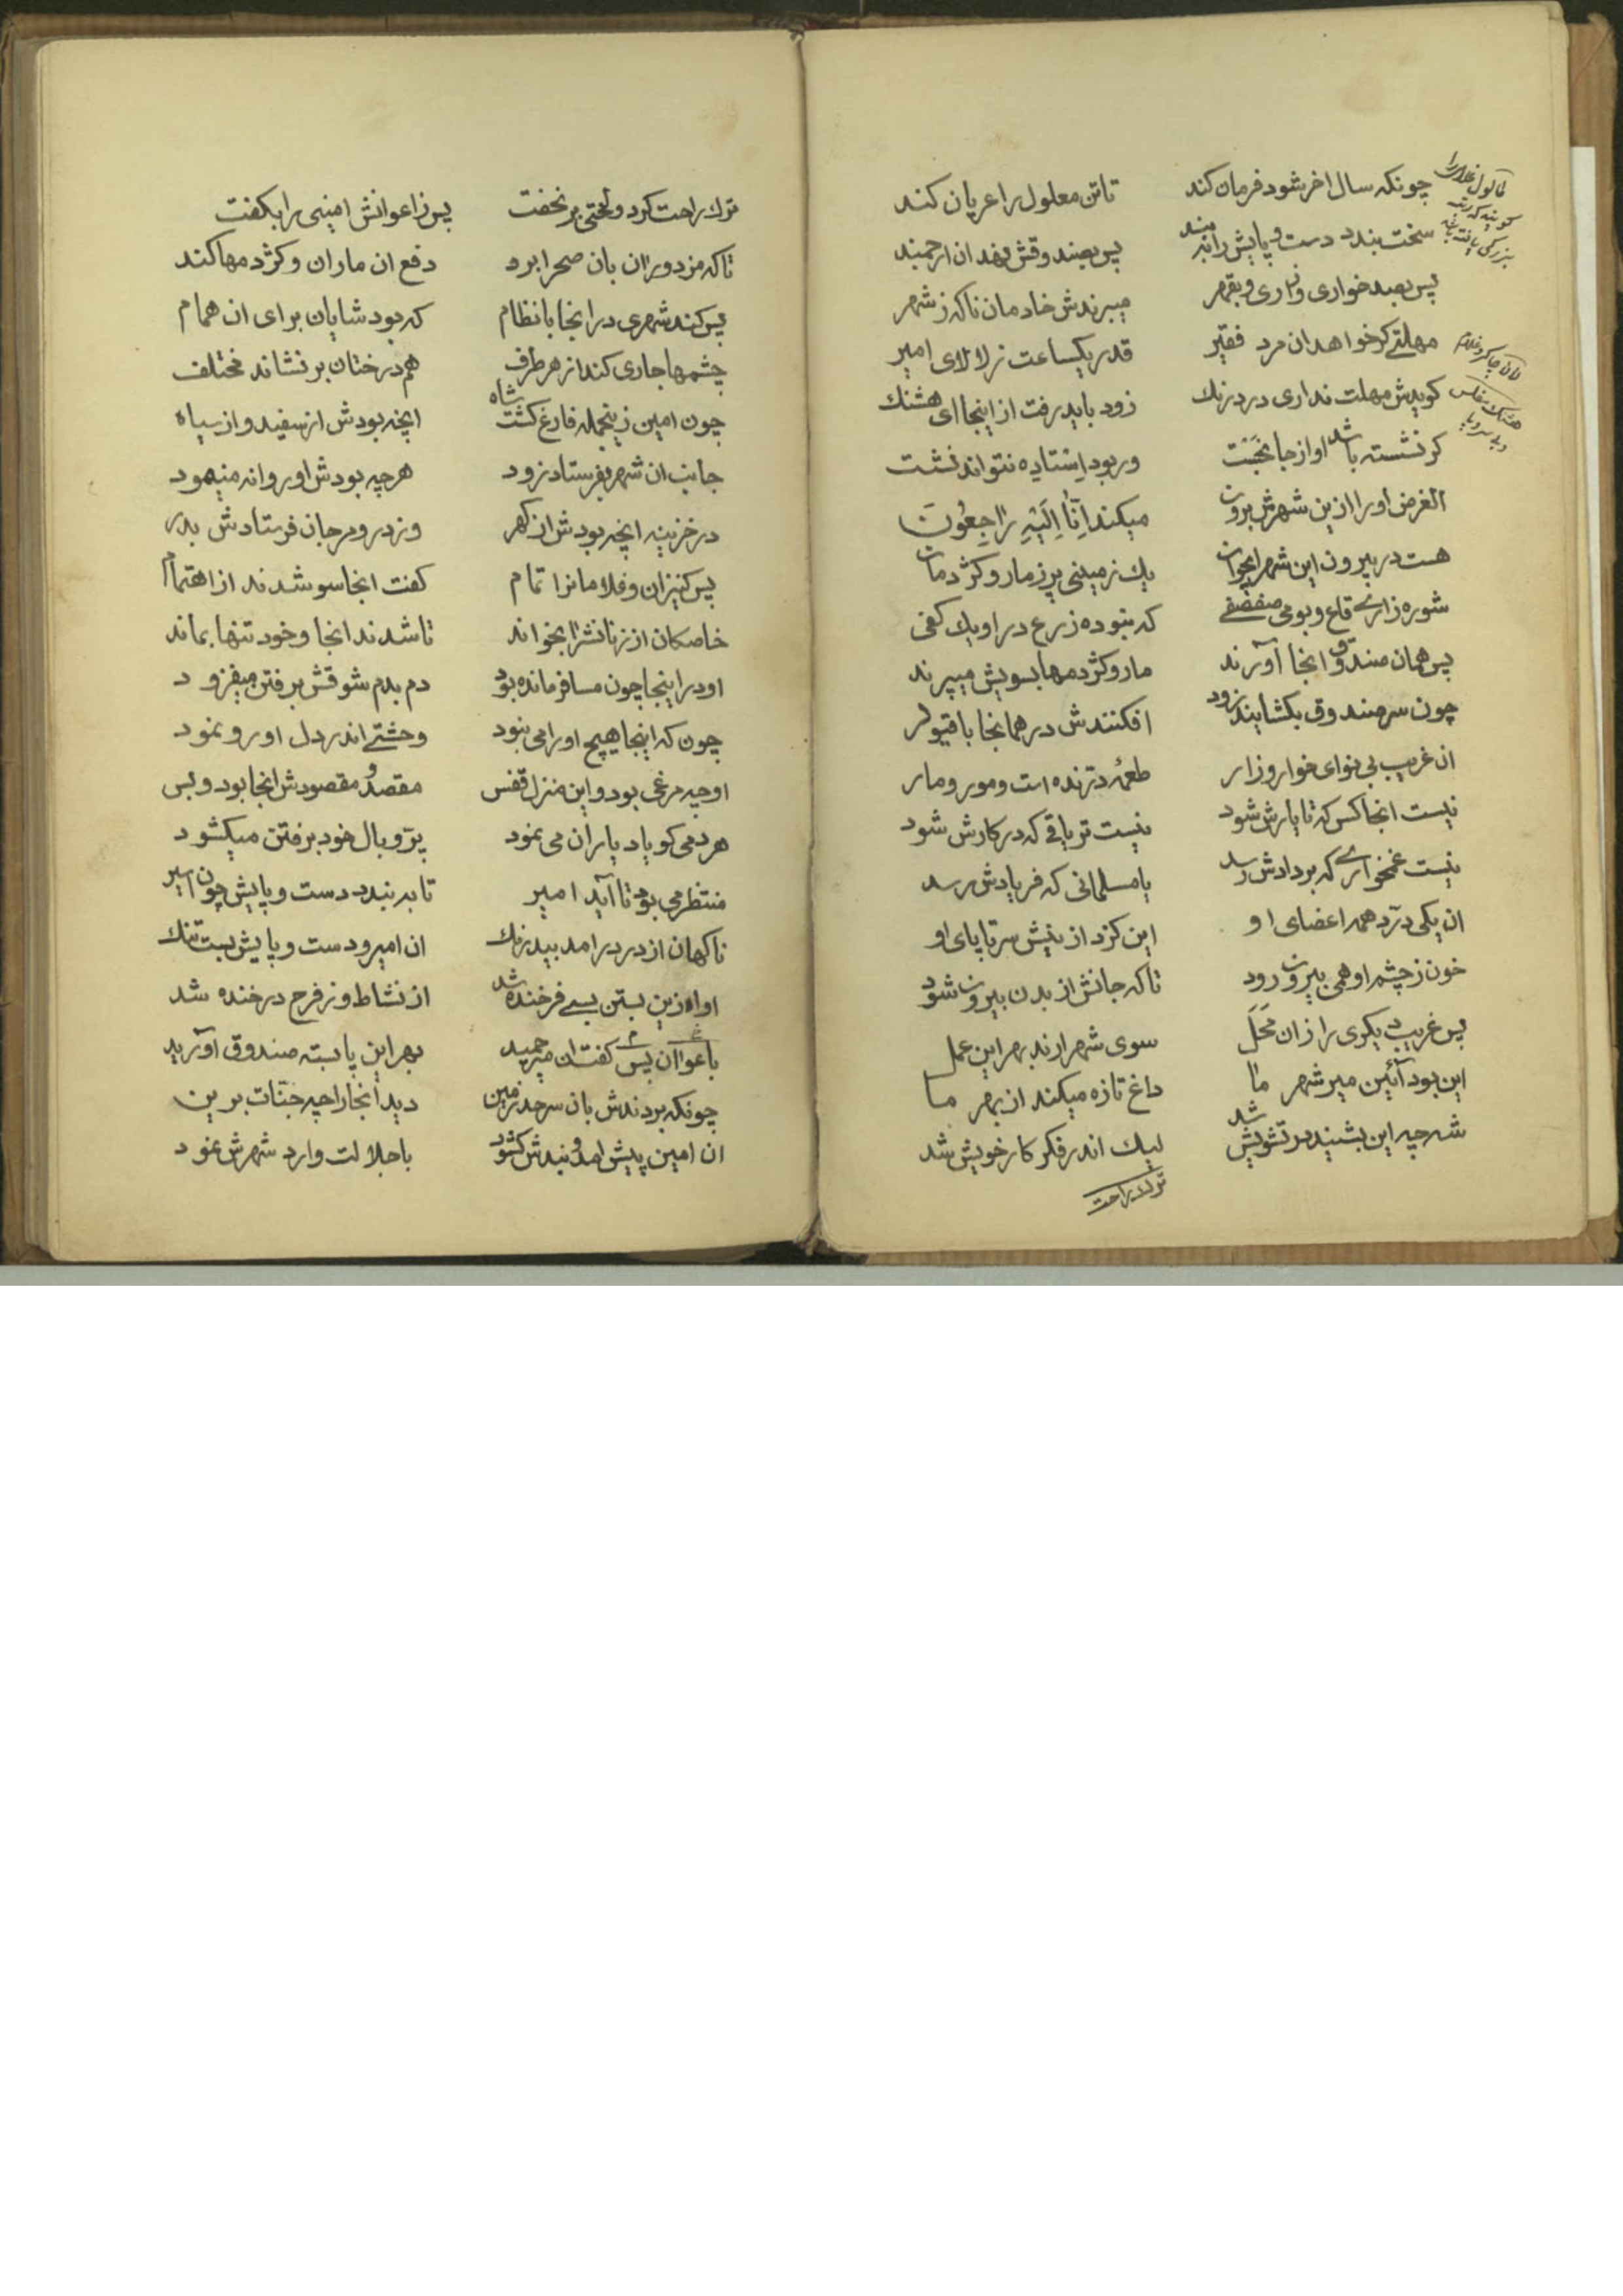 چونکه سال اخر شود فرمان کند تا تن معلول را عریان کند
سخت بندد دست و پایش را ببند پس بصندوقش نهد ان ارجمند
پس بصد خواری و زاری و بقهر میبرندش خادمان ناکه ز شهر
مهلتے کر خواهد ان مرد فقیر قدر یکساعت ز لالای امیر
کویدش مهلت نداری در درنك زود باید رفت از اینجا ای هشنك
کر نشسته باشد او از جا بجَست ور بود اِستاده نتواند نشست
الغرض او را ازین شهرش برون میکند اِنّا اِلَیْهِ رٰاجِعُونَ
هست در بیرون این شهر ایجوان یك زمینی پر ز مار و کژدمان
شوره زارے قاع و بومی صفصفے که نبوده زرع در او یك کفی
پس همان صندوق انجا آورند مار و کژدمها بسویش میپرند
چون سر صندوق بکشایند زود افکنندش در همانجا با قیود
ان غریب بی نوای خوار و زار طعمۀ درنده است و مور و مار
نیست انجا کس که تا یارش شود نیست تریاقے که در کارش شود
نیست غمخوارے که بر دادش رسد یا مسلمانی که فریادش رسد
ان یکی درّد همه اعضای او این کزد از نیش سر تا پای او
خون ز چشم او همی بیرون رود تا که جانش از بدن بیرون شود
پس غریب دیکری را زان مَحَلّ سوی شهر ارند بهر این عمل
این بود آئین میر شهر ما داغ تازه میکند از بهر ما
شه چه این بشنید در تشویش شد لیك اندر فکر کار خویش شد
ترك راحت
ترك راحت کرد و لختی بر نخفت پس ز اعوانش امینی را بکفت
تا که مزدوران بان صحرا برد دفع ان ماران و کژدمها کند
پس کند شهری در انجا با نظام که بود شایان برای ان همام
چشمها جاری کند از هر طرف هم درختان بر نشاند مختلف
چون امین زینجمله فارغ کشت شاه انچه بودش از سفید و از سیاه
جانب ان شهر بفرستاد زود هر چه بودش او روانه مینمود
در خزینه انچه بودش از کهر وز در و مرجان فرستادش بدر
پس کنیزان و غلامانرا تمام کفت انجا سو شدند از اهتمام
خاصکان از زنانشرا بخواند تا شدند انجا و خود تنها بماند
او در اینجا چون مسافر مانده بود دم بدم شوقش برفتن میفزود
چون که اینجا هیچ او را می نبود وحشتے اندر دل او رو نمود
او چه مرغی بود و این منزل قفس مقصد و مقصودش انجا بود و بس
هر دمی کو یاد یاران می نمود پرّ و بال خود برفتن میکشود
منتظر می بود تا آید امیر تا به بندد دست و پایش چون اسیر
ناکهان از در در امد بیدرنك ان امیر و دست و پایش بست تنك
او از زین بستن بسے فرخنده شد از نشاط و ز فرح در خنده شد
با عوانان پس کفت ان میر حمید بهر این پا بسته صندوق آورید
چونکه بردندش بان سرحد زمین دید انجا را چه جنّات برین
ان امین پیش امد و بندش کشود با جلالت وارد شهرش نمود